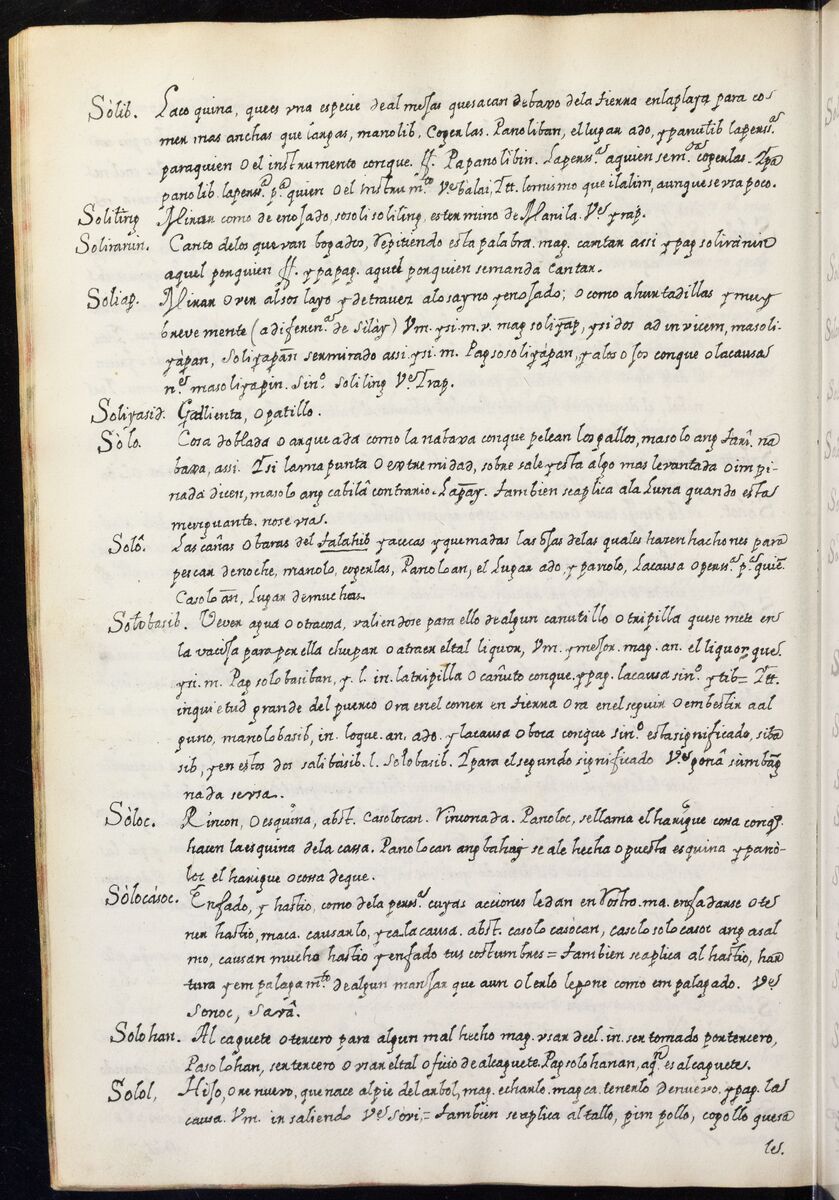 Sòlib. Laco quina, que es vna especie de almejas que sacan debaxo dela tierra enlaplaya para co
mer mas anchas que largas, manolib, Cogerlas. Panoliban, ellugar ado, ypanulib lapersa.
paraquien O el instrumento conque. ff. Papanolibin. Lapersa. aquien sema. cogerlas. Tpa
panolib. lapersa. pa. quien O el instrumto. Ve. balai, Itt. lomismo que ilalim, aunque se vsa poco.
Soliling Mirar como de enojado, sosolisoliling, es termino de Manila. Ve. yrap.
Soliranin. Canto delos que van bogado, Repitiendo esta palabra. mag. cantar assi ypag soliranin
aquel porquien ff. ypapag. aquel porquien semanda Cantar.
Soliap. Mirar O ver alsoslayo ydetravez alosayno yenojado; O como ahurtadillas ymuy
brevemente (a diferena. de silày) Vm. ysi. m. r. mag soliyap, ysi dos ad invicem, masoli-
yàpan, Soliyapan sermirado assi. ysi. m. Pagsosoliyàpan, yalos ojos conque O lacausa
no. masoliyapin. Sino. soliling Ve. Irap.
Soliyasid. Gallienta, O patillo.
Sòlo. Cosa doblada O arqueada como la nabaxa conque pelean los gallos, masolo ang tari. na
baxa, assi. Tsi lavna punta O extremidad, sobre sale yesta algo mas levantada O impi-
nada dicen, masolo ang cabilâ contrario. Lapay. tambien seaplica ala Luna quando esta
menguante. nose vsa.
Solô. Las cañas O baras del talahib yasecas yquemadas las ojas delas quales hazen hachones para
pescar denoche, manolo, cogerlas, Panoloan, el Lugar ado, y panolo, Lacausa O persa. pa. quie.
Casoloan, Lugar de muchas.
Solobasib. Vever agua O otracosa, valiendose para ello de algun canutillo O tripilla quese mete en
la vacija para por ella chupar O atraer eltal liquor, Vm. ymejor. mag. an. el liquor que.
ysi. m. Pag solobasiban, y. l. in. latripilla O cañuto conque. ypag. lacausa sino. ytib= Itt.
inquietud grande del puerco O ra enel comer en tierra O ra enel seguir O embestir aal
guno, manolobasib, in. loque. an. ado. ylacausa O boca conque sino. estasignificado, siba
sib, yen estos dos salibàsib. l. Solobasib. Tpara el segundo significado Ve. gona sumbang
nada se vsa.
Sòloc. Rincon, O esquina, abst. Casolocan. Rinconada. Panoloc, sellama el harigue cosa conq.
hacen la esquina dela casa. Panolocan ang bahay se ale hecha O puesta esquina ypanò-
loc el harigue O cosa deque.
Sòlocàsoc. Enfado, y hastio, como dela persa. cuyas acciones ledan en Rostro. ma. enfadarse O te
ner hastio, maca. causarlo, yca. la causa. abst. casolo casòcan, casolo solo casoc ang asal
mo, causan mucho hastio yenfado tus costumbres= tambien seaplica al hastio, har
tura yempalagamto. de algun manjar que aun olerlo lepone como empalagado. Ve.
Sonoc, Savâ.
Solohan. Alcaguete O tercero para algun mal hecho mag. vsar deel. in. ser tomado por tercero,
Pasolohan, ser tercero O vsar eltal oficio de alcaguete. Pagsolohanan, aqn. es alcaguete.
Solol, Hijo, O renuevo, que nace alpie del arbol, mag. echarlo. magca. tenerlo Denuevo. ypag. la
causa. Vm. in saliendo Ve. sovi,= tambien seaplica al tallo, pimpollo, cogollo quesa
le.